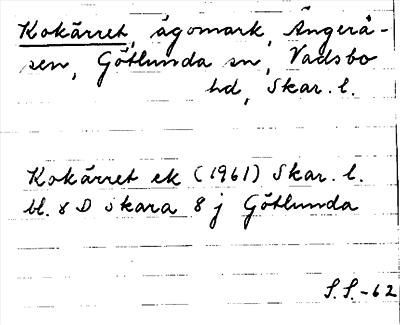 Kokärret, ägomark, Ängerå-
sen, Götlunda sn, Vadsbo
hd, Skar. l.
Kokärret ek (1961) Skar. l.
bl. 8 D Skara 8 j Götlunda
S.S.-62